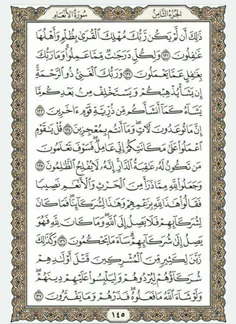 الجزء الثامن سورة الأنعام
ذَٰلِكَ أَن لَّمْ يَكُن رَّبُّكَ مُهْلِكَ ٱلْقُرَىٰ بِظُلْمٍ وَأَهْلُهَا
غَٰفِلُونَ ١٣١ وَلِكُلٍّ دَرَجَٰتٌ مِّمَّا عَمِلُوا۟ وَمَا رَبُّكَ
بِغَٰفِلٍ عَمَّا يَعْمَلُونَ ١٣٢ وَرَبُّكَ ٱلْغَنِيُّ ذُو ٱلرَّحْمَةِ
إِن يَشَأْ يُذْهِبْكُمْ وَيَسْتَخْلِفْ مِنۢ بَعْدِكُم مَّا
يَشَآءُ كَمَآ أَنشَأَكُم مِّن ذُرِّيَّةِ قَوْمٍ ءَاخَرِينَ ١٣٣
إِنَّ مَا تُوعَدُونَ لَءَاتٍ وَمَآ أَنتُم بِمُعْجِزِينَ ١٣٤ قُلْ يَٰقَوْمِ
ٱعْمَلُوا۟ عَلَىٰ مَكَانَتِكُمْ إِنِّي عَامِلٌ فَسَوْفَ تَعْلَمُونَ
مَن تَكُونُ لَهُۥ عَٰقِبَةُ ٱلدَّارِ إِنَّهُۥ لَا يُفْلِحُ ٱلظَّٰلِمُونَ ١٣٥
وَجَعَلُوا۟ لِلَّهِ مِمَّا ذَرَأَ مِنَ ٱلْحَرْثِ وَٱلْأَنْعَٰمِ نَصِيبًا
فَقَالُوا۟ هَٰذَا لِلَّهِ بِزَعْمِهِمْ وَهَٰذَا لِشُرَكَآئِنَا فَمَا كَانَ
لِشُرَكَآئِهِمْ فَلَا يَصِلُ إِلَى ٱللَّهِ وَمَا كَانَ لِلَّهِ فَهُوَ
يَصِلُ إِلَىٰ شُرَكَآئِهِمْ سَآءَ مَا يَحْكُمُونَ ١٣٦ وَكَذَٰلِكَ
زَيَّنَ لِكَثِيرٍ مِّنَ ٱلْمُشْرِكِينَ قَتْلَ أَوْلَٰدِهِمْ
شُرَكَآؤُهُمْ لِيُرْدُوهُمْ وَلِيَلْبِسُوا۟ عَلَيْهِمْ دِينَهُمْ
وَلَوْ شَآءَ ٱللَّهُ مَا فَعَلُوهُ فَذَرْهُمْ وَمَا يَفْتَرُونَ ١٣٧
١٤٥